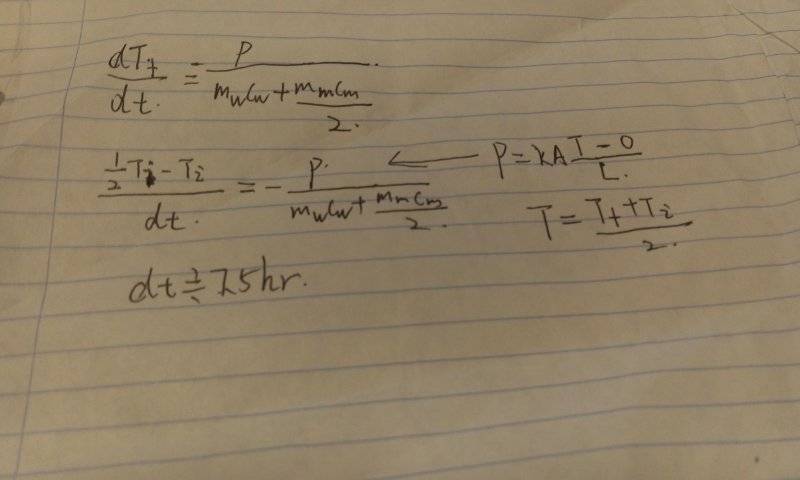 dT_f/dt. = P/(m_w c_w + m_m c_m/2.)
(1/2 T_i - T_i)/dt. = - P./(m_w c_w + m_m c_m/2.) ← P = kA (T - 0)/L.
T = (T_f + T_i)/2.
dt ≑ 7.5 hr.